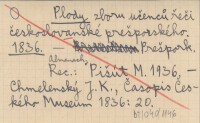 O Plody zboru učenců řeči
českoslovanské prešporského.
1836. – Prešpork.
Almanach.
Rec.: Pišút M. 1936, –
Chmelenský J. K., Časopis Čes-
kého Museum 1836: 20.